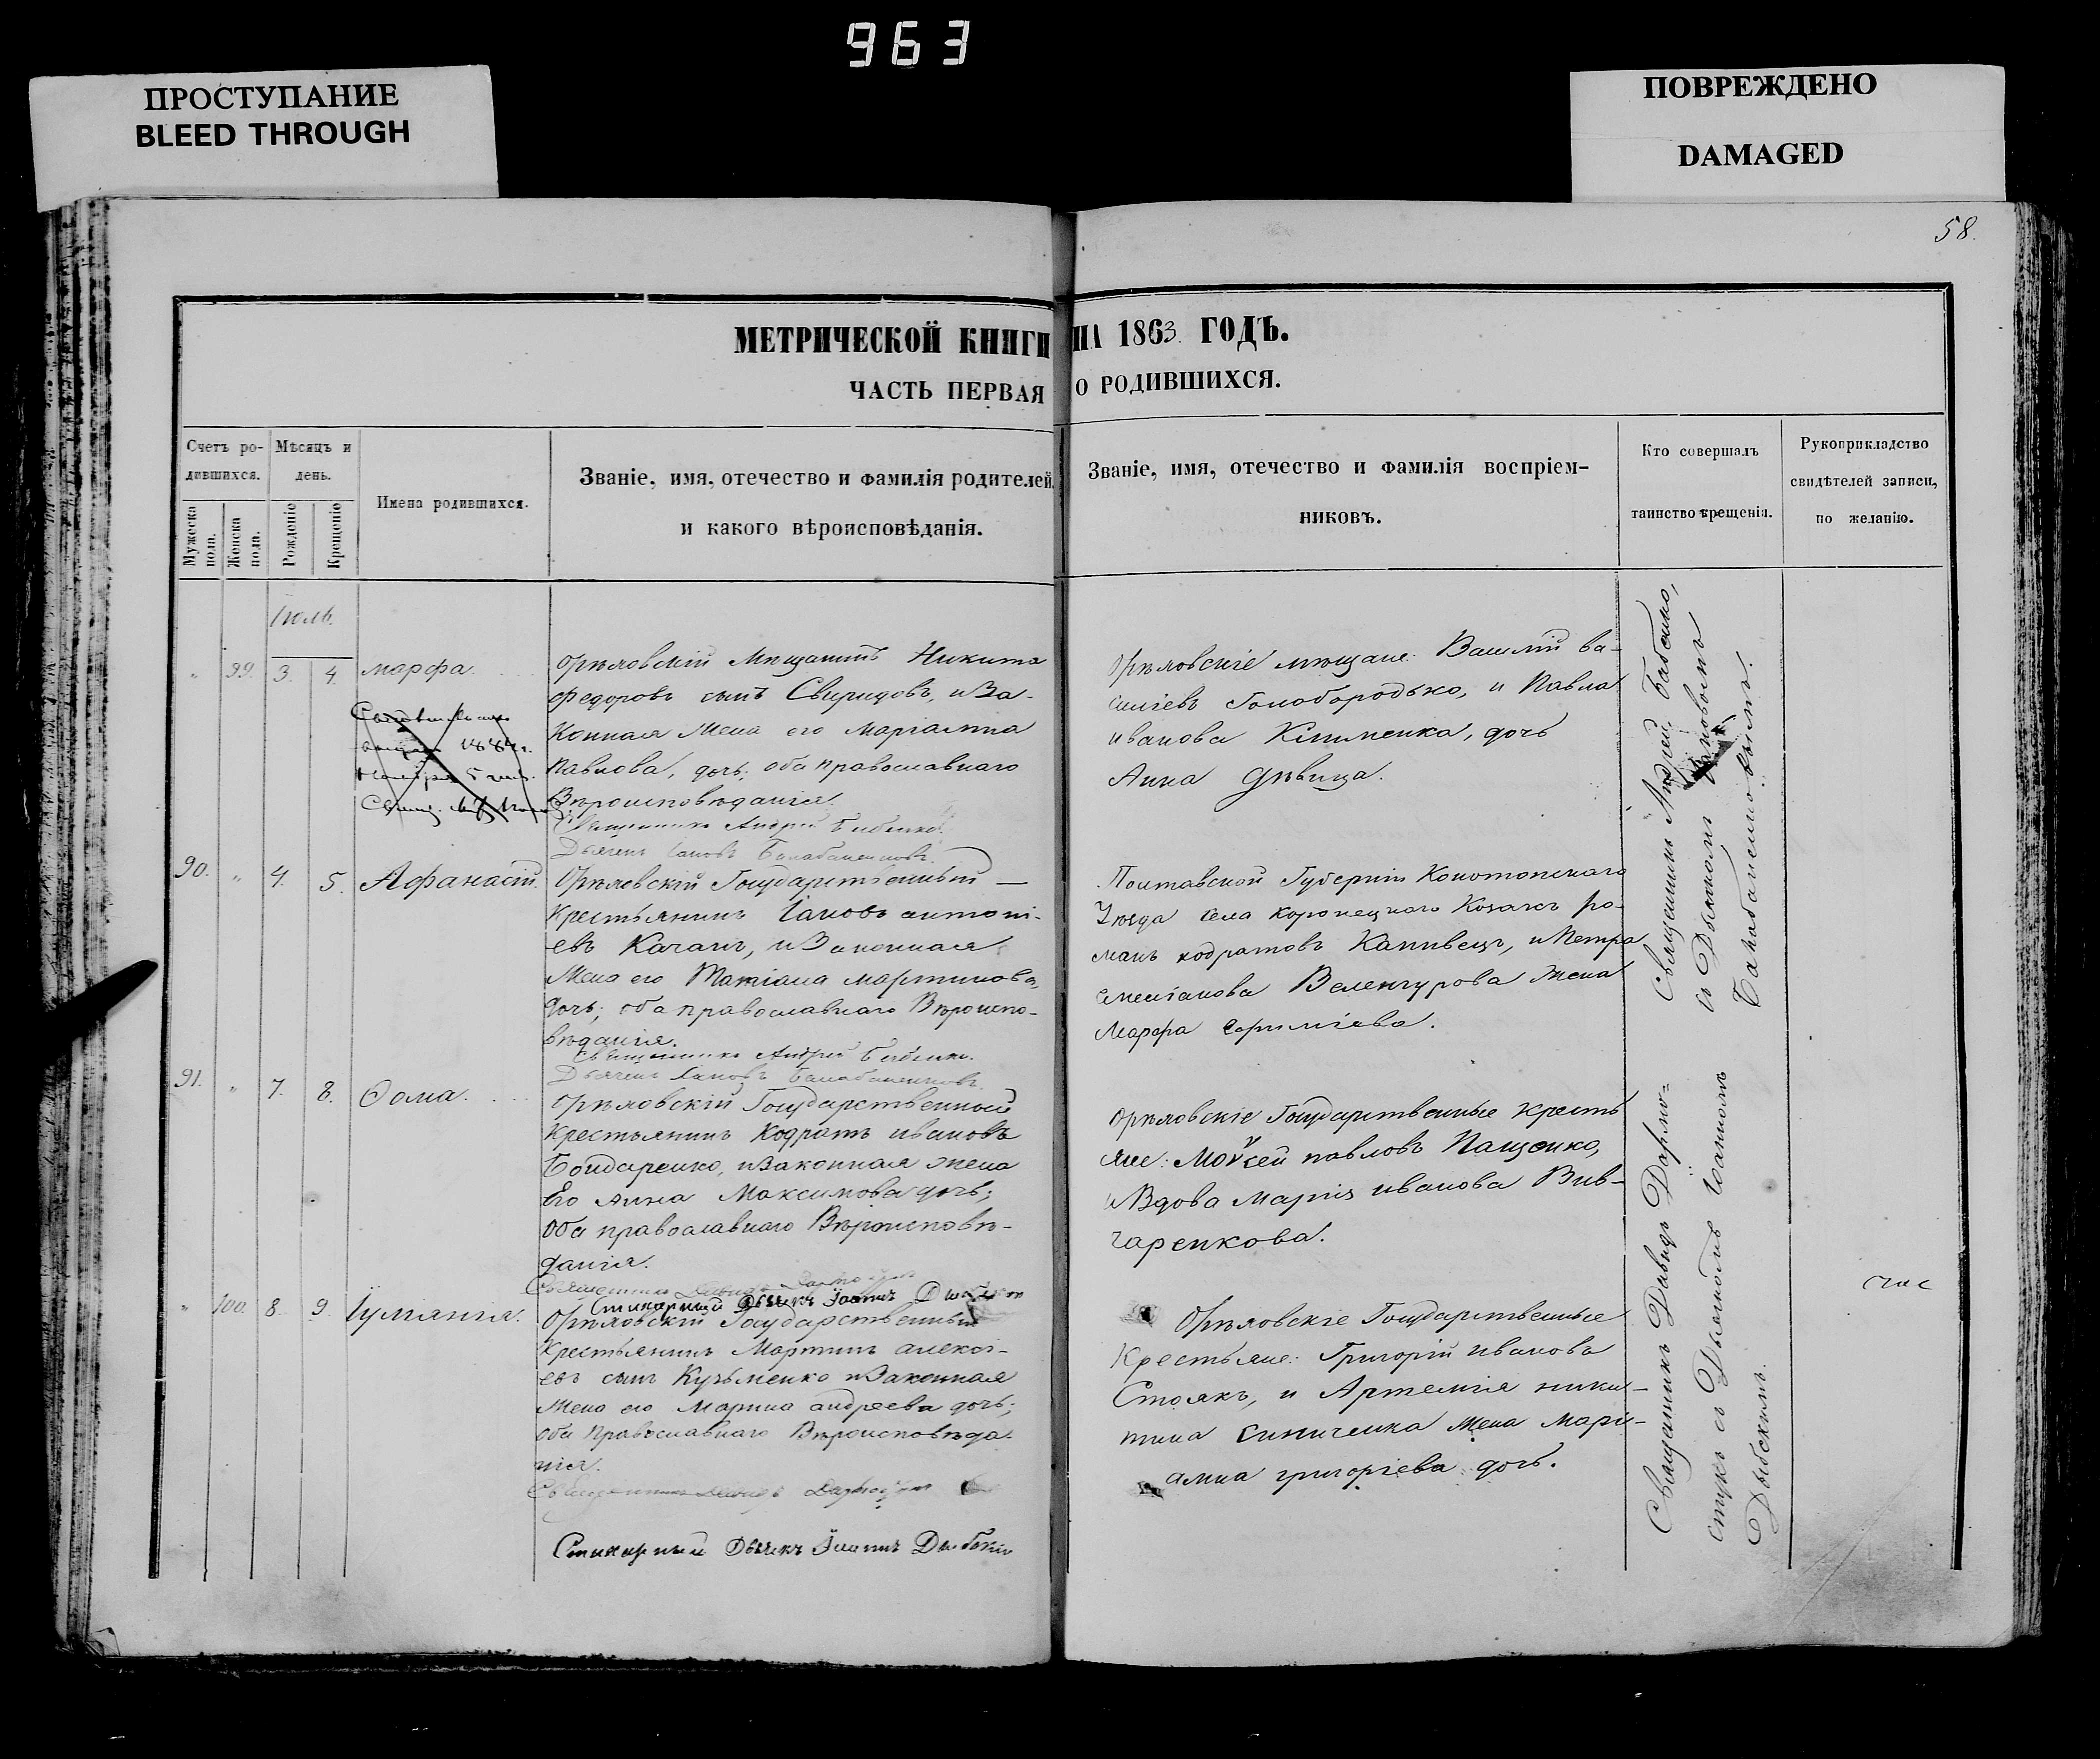 963
ПРОСТУПАНИЕ
BLEED THROUGH
ПОВРЕЖДЕНО
DAMAGED
58.
МЕТРИЧЕСКОЙ КНИГИ НА 1863 ГОДЪ.
ЧАСТЬ ПЕРВАЯ О РОДИВШИХСЯ.
Счетъ ро-
дившихся.
Мужеска пола.
Женска пола.
Мѣсяцъ и
день.
Рожденіе
Крещеніе
Имена родившихся.
Званіе, имя, отечество и фамилія родителей,
и какого вѣроисповѣданія.
Званіе, имя, отечество и фамилія воспріем-
никовъ.
Кто совершалъ
таинство крещенія.
Рукоприкладство
свидѣтелей записи,
по желанію.
Іюль.
" 99. 3. 4. Марфа.
Орѣловскій Мѣщанинъ Никита
Федоровъ сынъ Свиридовъ, и За-
конная Жена его Маріамна
Павлова, дочь; оба православнаго
Вѣроисповѣданія.
Священникъ Андрей Бабенко.
Дьячекъ Іаковъ Балабаненковъ.
Орѣловскіе мѣщане: Василій Ва-
силіевъ Голобородько, и Павла
Иванова Клименка, дочь
Анна Дѣвица.
1884 г.
90. " 4. 5. Афанасій.
Орѣловскій Государственный —
Крестьянинъ Іаковъ Антоні-
евъ Качанъ, и Законная
Жена его Татіана Мартинова,
Дочь; оба православнаго Вѣроиспо-
вѣданія.
Священникъ Андрей Бабенко.
Дьячекъ Іаковъ Балабаненковъ.
Полтавской Губерніи Конотопскаго
Уѣзда села Коропецкаго Козакъ Ро-
манъ Кодратовъ Капивецъ, и Петра
Емеліанова Веленгурова Жена
Марфа Ефиміева.
91. " 7. 8. Ѳома.
Орѣловскій Государственной
Крестьянинъ Кодратъ Ивановъ
Бондаренко, и Законная жена
Его Анна Максимова дочь;
Оба православнаго Вѣроисповѣ-
данія.
Священникъ Давидъ
Стихарный Дьячекъ Іоаннъ
Орѣловскіе Государственные Кресть
яне: Мойсей Павловъ Пащенко,
и Вдова Марія Иванова Вив-
чаренкова.
" 100. 8. 9. Іуліанія.
Орѣловскій Государственный
Крестьянинъ Мартинъ Алексі-
евъ сынъ Кузьменко и Законная
Жена его Марина Андреева дочь;
Оба Православнаго Вѣроисповѣда-
нія.
Священникъ Давидъ
Стихарный Дьячекъ Іоаннъ Дыбскій
Орѣловскіе Государственные
Крестьяне: Григорій Ивановъ
Стоякъ, и Артемія Ники-
тина Синиченка Жена Марі-
амна Григоріева дочь.
Священникъ Андрей Бабенко,
съ Дьячкомъ Іаковомъ
Балабаненковымъ.
Священникъ Давидъ
съ Дьячкомъ Іоанномъ
Дыбскимъ.